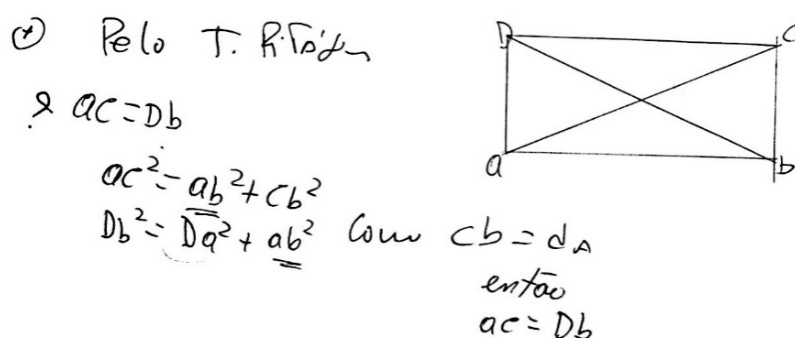 Pelo T. Pitágo
? ac = Db
ac² = ab² + cb²
Db² = Da² + ab² Como cb = dA
então
ac = Db
D C
a b